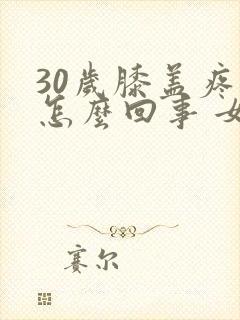 30歲膝盖疼
怎麼回事 女
赛尔